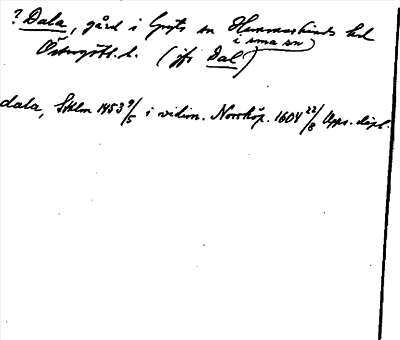 ? Dala, gård i Gryts sn Hammarkinds hd
i sma sn
Östergötl. l. (jfr Dal)
dala, Sthlm 1453 9/5 i vidim. Norrköp. 1604 22/8 Upps. dipl.